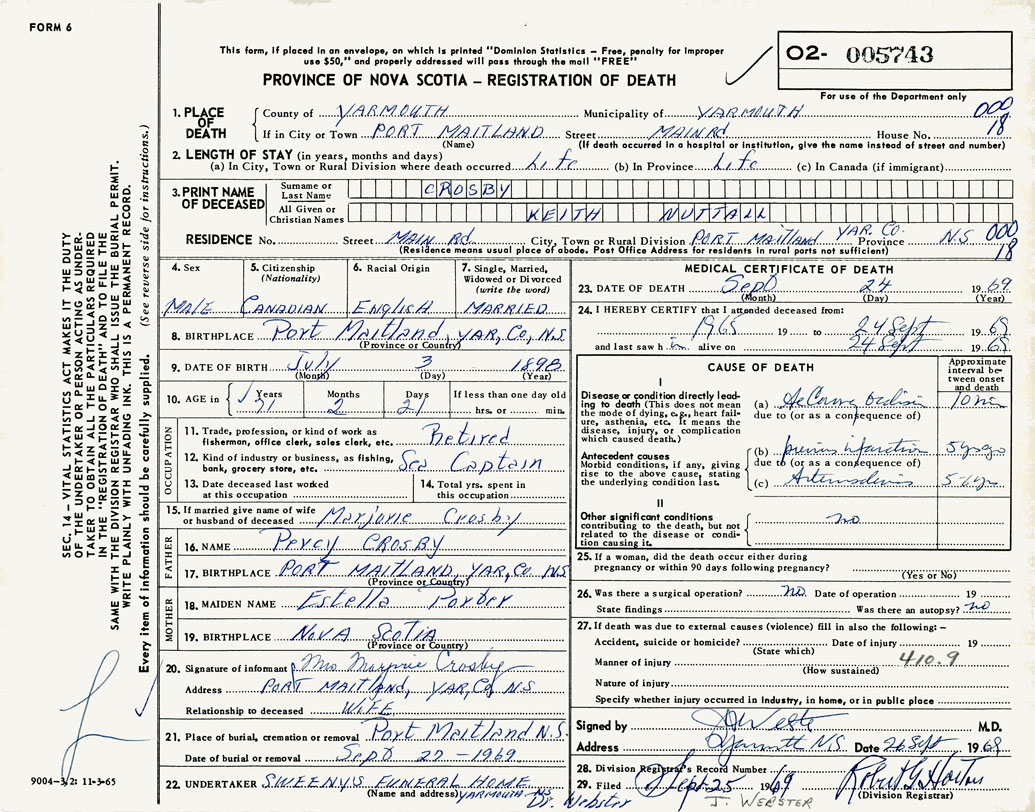 FORM 6
This form, if placed in an envelope, on which is printed "Dominion Statistics – Free, penalty for improper
use $50," and properly addressed will pass through the mail "FREE"
PROVINCE OF NOVA SCOTIA – REGISTRATION OF DEATH
O2- 005743
For use of the Department only
SEC. 14 – VITAL STATISTICS ACT MAKES IT THE DUTY
OF THE UNDERTAKER OR PERSON ACTING AS UNDER-
TAKER TO OBTAIN ALL THE PARTICULARS REQUIRED
IN THE "REGISTRATION OF DEATH" AND TO FILE THE
SAME WITH THE DIVISION REGISTRAR WHO SHALL ISSUE THE BURIAL PERMIT.
WRITE PLAINLY WITH UNFADING INK. THIS IS A PERMANENT RECORD.
Every item of information should be carefully supplied. (See reverse side for instructions.)
1. PLACE OF DEATH
County of YARMOUTH Municipality of YARMOUTH 000
If in City or Town PORT MAITLAND Street MAIN Rd House No. 18
(Name) (If death occurred in a hospital or institution, give the name instead of street and number)
2. LENGTH OF STAY (in years, months and days)
(a) In City, Town or Rural Division where death occurred Life (b) In Province Life (c) In Canada (if immigrant)
3. PRINT NAME OF DECEASED
Surname or Last Name CROSBY
All Given or Christian Names KEITH NUTTALL
RESIDENCE No. Street MAIN Rd. City, Town or Rural Division PORT MAITLAND YAR. CO. Province N.S 000
(Residence means usual place of abode. Post Office Address for residents in rural parts not sufficient) 18
4. Sex MALE
5. Citizenship (Nationality) CANADIAN
6. Racial Origin ENGLISH
7. Single, Married, Widowed or Divorced (write the word) MARRIED
8. BIRTHPLACE Port Maitland, YAR, Co, N.S
(Province or Country)
9. DATE OF BIRTH July 3 1898
(Month) (Day) (Year)
10. AGE in Years 71 Months 2 Days 21 If less than one day old hrs. or min.
OCCUPATION
11. Trade, profession, or kind of work as fisherman, office clerk, sales clerk, etc. Retired
12. Kind of industry or business, as fishing, bank, grocery store, etc. Sea Captain
13. Date deceased last worked at this occupation
14. Total yrs. spent in this occupation
15. If married give name of wife or husband of deceased Marjorie Crosby
FATHER
16. NAME Percy CROSBY
17. BIRTHPLACE PORT MAITLAND, YAR, Co N.S
(Province or Country)
MOTHER
18. MAIDEN NAME Estella Porter
19. BIRTHPLACE NOVA SCOTIA
(Province or Country)
20. Signature of informant Mrs Marjorie Crosby
Address PORT MAITLAND, YAR, Co, N.S
Relationship to deceased WIFE
21. Place of burial, cremation or removal Port Maitland N.S.
Date of burial or removal Sept 27 - 1969
22. UNDERTAKER SWEENY'S FUNERAL HOME
(Name and address) YARMOUTH NS
9004-3/2: 11-3-65
MEDICAL CERTIFICATE OF DEATH
23. DATE OF DEATH Sept 24 1969
(Month) (Day) (Year)
24. I HEREBY CERTIFY that I attended deceased from:
1965 19 to 24 Sept 1969
and last saw him alive on 24 Sept 1969
CAUSE OF DEATH
Approximate interval between onset and death
I
Disease or condition directly leading to death (This does not mean the mode of dying, e.g., heart failure, asthenia, etc. It means the disease, injury, or complication which caused death.)
(a)
due to (or as a consequence of)
Antecedent causes
Morbid conditions, if any, giving rise to the above cause, stating the underlying condition last.
(b) previous infarction
due to (or as a consequence of)
(c)
II
Other significant conditions contributing to the death, but not related to the disease or condition causing it. no
25. If a woman, did the death occur either during
pregnancy or within 90 days following pregnancy?
(Yes or No)
26. Was there a surgical operation? no Date of operation 19
State findings Was there an autopsy? no
27. If death was due to external causes (violence) fill in also the following: –
Accident, suicide or homicide? Date of injury 19
(State which)
Manner of injury 410.9
(How sustained)
Nature of injury
Specify whether injury occurred in Industry, in home, or in public place
Signed by M.D.
Address Yarmouth N.S. Date 26 Sept 1969
28. Division Registrar's Record Number
29. Filed Sept 25 1969 Robert G. Horton
(Division Registrar)
Dr. Webster
J. WEBSTER